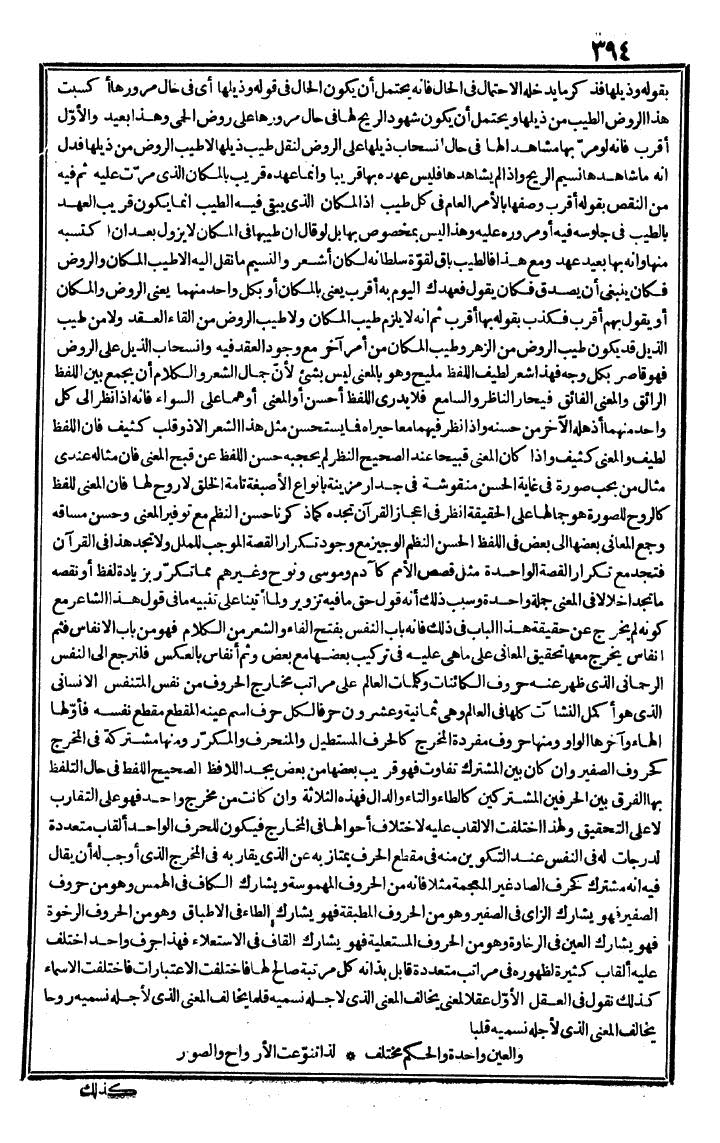 ٣٩٤
بقوله وذيلها فذكر ما يدخله الاحتمال فى الحال فانه يحتمل أن يكون الحال فى قوله وذيلها أى فى حال مرورها أكسبت
هذا الروض الطيب من ذيلها ويحتمل أن يكون شهود الريح لها فى حال مرورها على روض الحمى وهذا بعيد والأوّل
أقرب فانه لو مرّ بها مشاهدا لها فى حال انسحاب ذيلها على الروض لنقل طيب ذيلها لا طيب الروض من ذيلها فدل
انه ما شاهدها نسيم الريح واذا لم يشاهدها فليس عهده بها قريبا وانما عهده قريب بالمكان الذى مرّت عليه ثم فيه
من النقص بقوله أقرب وصفها بالأمر العام فى كل طيب اذ المكان الذى يبقى فيه الطيب انما يكون قريب العهد
بالطيب فى جلوسه فيه أو مروره عليه وهذا ليس بمخصوص بها بل لو قال ان طيبها فى المكان لا يزول بعد ان اكتسبه
منها وانه بها بعيد عهد ومع هذا فالطيب باق لقوّة سلطانه لكان أشعر والنسيم ما نقل اليه الا طيب المكان والروض
فكان ينبغى أن يصدق فكان يقول فعهدك اليوم به أقرب يعنى بالمكان أو بكل واحد منهما يعنى الروض والمكان
أو يقول بهم أقرب فكذب بقوله بها أقرب ثم انه لا يلزم طيب المكان ولا طيب الروض من القاء العقد ولا من طيب
الذيل قد يكون طيب الروض من الزهر وطيب المكان من أمر آخر مع وجود العقد فيه وانسحاب الذيل على الروض
فهو قاصر بكل وجه فهذا شعر لطيف اللفظ مليح وهو بالمعنى ليس بشئ لأنّ جمال الشعر والكلام أن يجمع بين اللفظ
الرائق والمعنى الفائق فيحار الناظر والسامع فلا يدرى اللفظ أحسن أو المعنى أو هما على السواء فانه اذا نظر الى كل
واحد منهما أذهله الآخر من حسنه واذا نظر فيهما معا حيراه فما يستحسن مثل هذا الشعر الا ذو قلب كثيف فان اللفظ
لطيف والمعنى كثيف واذا كان المعنى قبيحا عند الصحيح النظر لم يحجبه حسن اللفظ عن قبح المعنى فان مثاله عندى
مثال من يحب صورة فى غاية الحسن منقوشة فى جدار مزينة بانواع الأصبغة تامة الخلق لا روح لها فان المعنى للفظ
كالروح للصورة هو جمالها على الحقيقة انظر فى اعجاز القرآن تجده كما ذكرنا حسن النظم مع توفير المعنى وحسن مساقه
وجمع المعانى بعضها الى بعض فى اللفظ الحسن النظم الوجيز مع وجود تكرار القصة الموجب للملل ولا تجد هذا فى القرآن
فتجد مع تكرار القصة الواحدة مثل قصص الأمم كآدم وموسى ونوح وغيرهم مما تكرّر بزيادة لفظ أو نقصه
ما تجد اخلالا فى المعنى جملة واحدة وسبب ذلك أنه قول حق ما فيه تزوير ولما أتينا على تنبيه ما فى قول هذا الشاعر مع
كونه لم يخرج عن حقيقة هذا الباب فى ذلك فانه باب النفس بفتح الفاء والشعر من الكلام فهو من باب الانفاس فثم
انفاس يخرج معها تحقيق المعانى على ما هى عليه فى تركيب بعضها مع بعض وثم أنفاس بالعكس فلنرجع الى النفس
الرحمانى الذى ظهر عنه حروف الكائنات وكلمات العالم على مراتب مخارج الحروف من نفس المتنفس الانسانى
الذى هو أكمل النشآت كلها فى العالم وهى ثمانية وعشرون حرفا لكل حرف اسم عينه المقطع مقطع نفسه فأوّلها
الهاء وآخرها الواو ومنها حروف مفردة المخرج كالحرف المستطيل والمنحرف والمكرّر ومنها مشتركة فى المخرج
كحروف الصفير وان كان بين المشترك تفاوت فهو قريب بعضها من بعض يجد اللافظ الصحيح اللفظ فى حال التلفظ
بها الفرق بين الحرفين المشتركين كالطاء والتاء والدال فهذه الثلاثة وان كانت من مخرج واحد فهو على التقارب
لا على التحقيق ولهذا اختلفت الالقاب عليه لاختلاف أحوالها فى المخارج فيكون للحرف الواحد ألقاب متعددة
لدرجات له فى النفس عند التكوين منه فى مقطع الحرف يمتاز به عن الذى يقاربه فى المخرج الذى أوجب له أن يقال
فيه انه مشترك كحرف الصاد غير المعجمة مثلا فانه من الحروف المهموسة ويشارك الكاف فى الهمس وهو من حروف
الصفير فهو يشارك الزاى فى الصفير وهو من الحروف المطبقة فهو يشارك الطاء فى الاطباق وهو من الحروف الرخوة
فهو يشارك العين فى الرخاوة وهو من الحروف المستعلية فهو يشارك القاف فى الاستعلاء فهذا حرف واحد اختلف
عليه ألقاب كثيرة لظهوره فى مراتب متعددة قابل بذاته كل مرتبة صالح لها فاختلفت الاعتبارات فاختلفت الاسماء
كذلك نقول فى العقل الأوّل عقلا لمعنى يخالف المعنى الذى لاجله نسميه قلما يخالف المعنى الذى لأجله نسميه روحا
يخالف المعنى الذى لأجله نسميه قلبا
والعين واحدة والحكم مختلف * لذا تنوّعت الأرواح والصور
كذلك